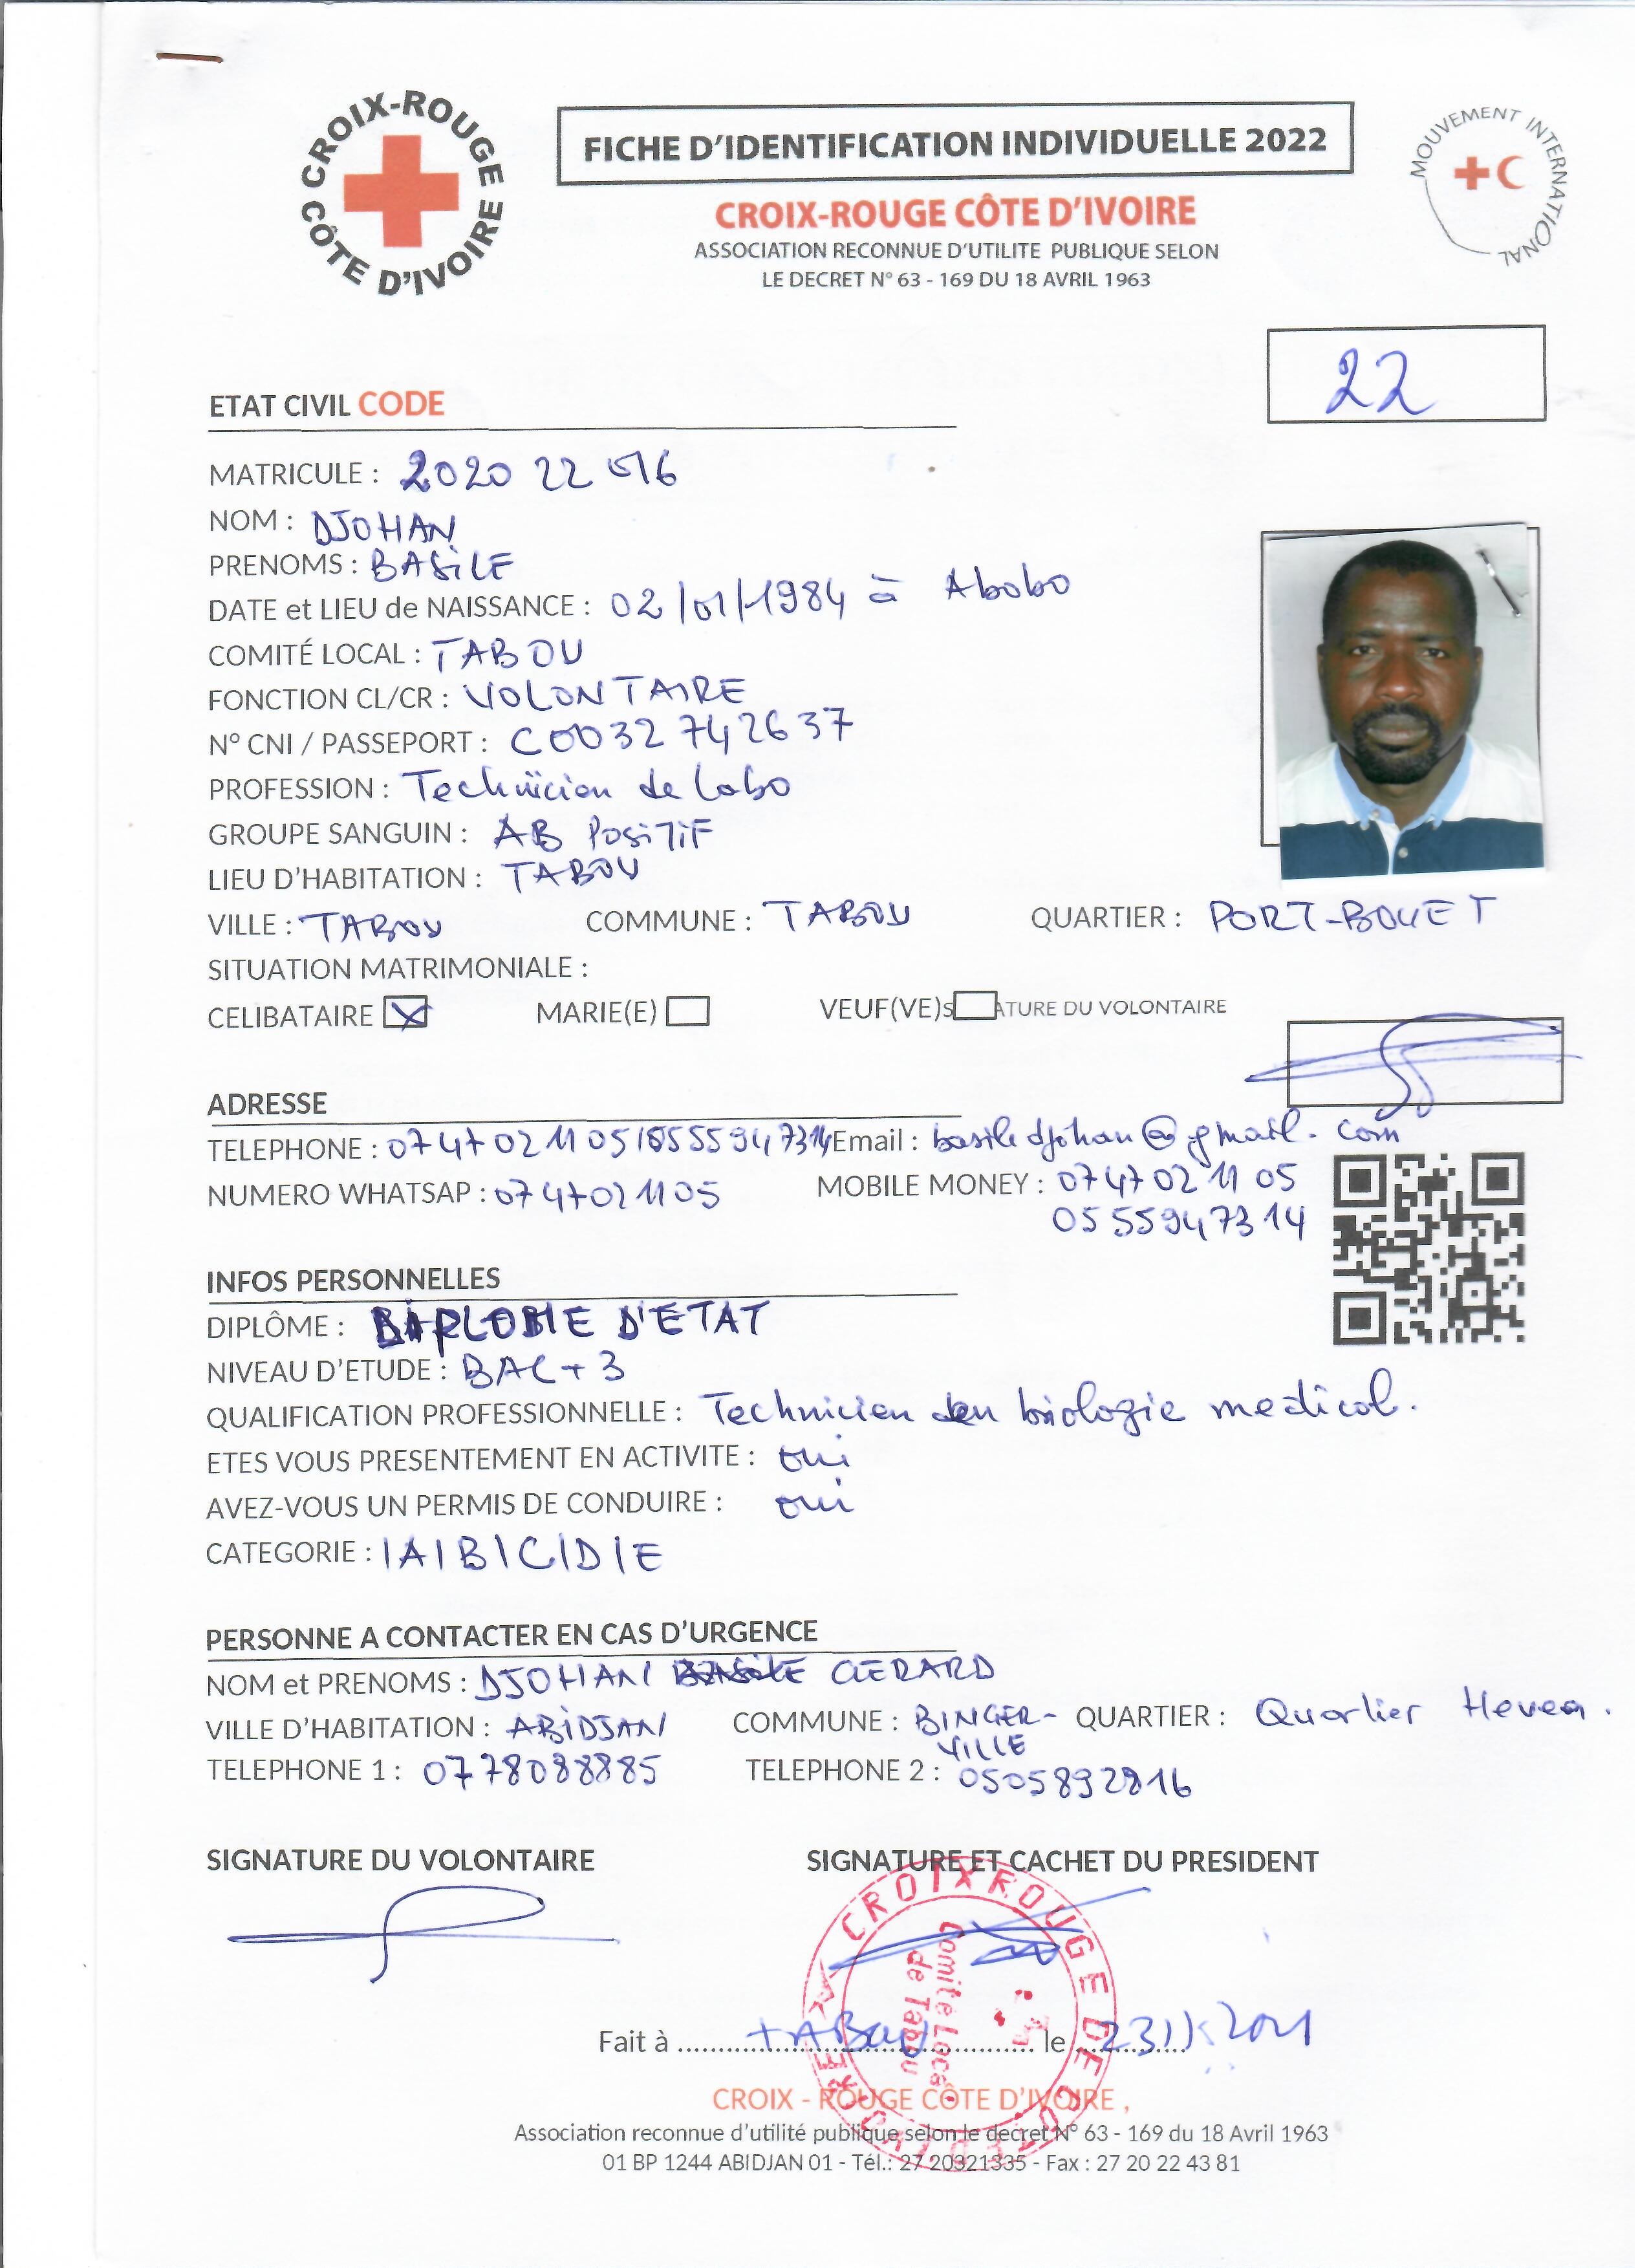 CROIX-ROUGE CÔTE D'IVOIRE
FICHE D'IDENTIFICATION INDIVIDUELLE 2022
MOUVEMENT INTERNATIONAL
CROIX-ROUGE CÔTE D'IVOIRE
ASSOCIATION RECONNUE D'UTILITE PUBLIQUE SELON
LE DECRET N° 63 - 169 DU 18 AVRIL 1963
22
ETAT CIVIL CODE
MATRICULE : 2020 22 016
NOM : DJOHAN
PRENOMS : BASILE
DATE et LIEU de NAISSANCE : 02/01/1984 à Abobo
COMITÉ LOCAL : TABOU
FONCTION CL/CR : VOLONTAIRE
N° CNI / PASSEPORT : C0032742637
PROFESSION : Technicien de Labo
GROUPE SANGUIN : AB POSiTiF
LIEU D'HABITATION : TABOU
VILLE : TABOU COMMUNE : TABOU QUARTIER : PORT-BOUET
SITUATION MATRIMONIALE :
CELIBATAIRE X MARIE(E) VEUF(VE)S ATURE DU VOLONTAIRE
ADRESSE
TELEPHONE : 0747021105/0555947314 Email : basiledjohan@gmail.com
NUMERO WHATSAP : 0747021105 MOBILE MONEY : 0747021105
0555947314
INFOS PERSONNELLES
DIPLÔME : DIPLOME D'ETAT
NIVEAU D'ETUDE : BAC+3
QUALIFICATION PROFESSIONNELLE : Technicien en biologie medical.
ETES VOUS PRESENTEMENT EN ACTIVITE : oui
AVEZ-VOUS UN PERMIS DE CONDUIRE : oui
CATEGORIE : |A|B|C|D|E
PERSONNE A CONTACTER EN CAS D'URGENCE
NOM et PRENOMS : DJOHAN GERARD
VILLE D'HABITATION : ABIDJAN COMMUNE : BINGER- QUARTIER : Quartier Hevea.
VILLE
TELEPHONE 1 : 0778088885 TELEPHONE 2 : 0505892816
SIGNATURE DU VOLONTAIRE SIGNATURE ET CACHET DU PRESIDENT
CROIX ROUGE DE COTE D'IVOIRE
Comité Local
de Tabou
Fait à TABOU le 23
CROIX - ROUGE CÔTE D'IVOIRE ,
Association reconnue d'utilité publique selon le decret N° 63 - 169 du 18 Avril 1963
01 BP 1244 ABIDJAN 01 - Tél.: 27 20321335 - Fax : 27 20 22 43 81